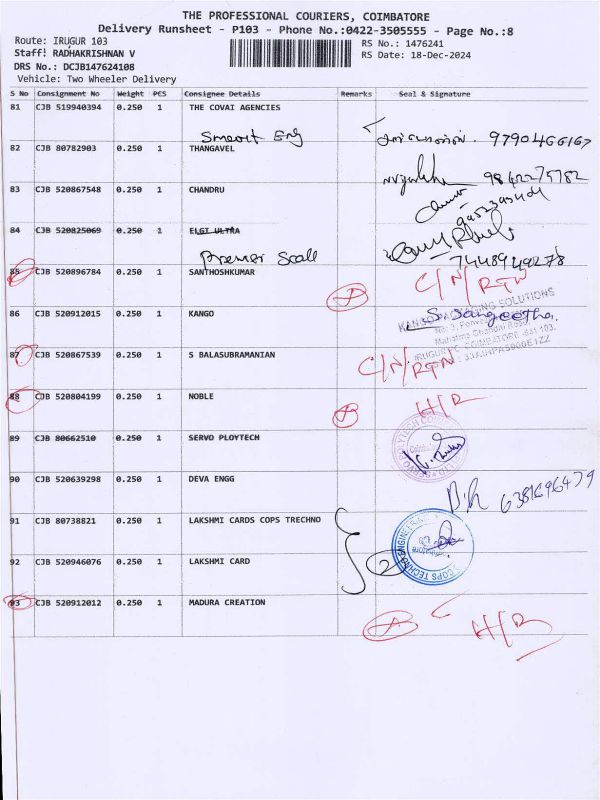 THE PROFESSIONAL COURIERS, COIMBATORE
Delivery Runsheet - P103 - Phone No.:0422-3505555 - Page No.:8
Route: IRUGUR 103
RS No.: 1476241
Staff: RADHAKRISHNAN V
RS Date: 18-Dec-2024
DRS No.: DCJB147624108
Vehicle: Two Wheeler Delivery
S No Consignment No Weight PCS Consignee Details Remarks Seal & Signature
81 CJB 519940394 0.250 1 THE COVAI AGENCIES
Smart Eng 9790466167
82 CJB 80782903 0.250 1 THANGAVEL
9842275782
83 CJB 520867548 0.250 1 CHANDRU
84 CJB 520825069 0.250 1 ELGI ULTRA
Premier Scale 7448949278
85 CJB 520896784 0.250 1 SANTHOSHKUMAR C/N/RTN
86 CJB 520912015 0.250 1 KANGO S. Sangeetha.
87 CJB 520867539 0.250 1 S BALASUBRAMANIAN C/N/RTN
88 CJB 520804199 0.250 1 NOBLE H/R
89 CJB 80662510 0.250 1 SERVO PLOYTECH
90 CJB 520639298 0.250 1 DEVA ENGG
6381696479
91 CJB 80738821 0.250 1 LAKSHMI CARDS COPS TRECHNO
2
92 CJB 520946076 0.250 1 LAKSHMI CARD
93 CJB 520912012 0.250 1 MADURA CREATION H/R